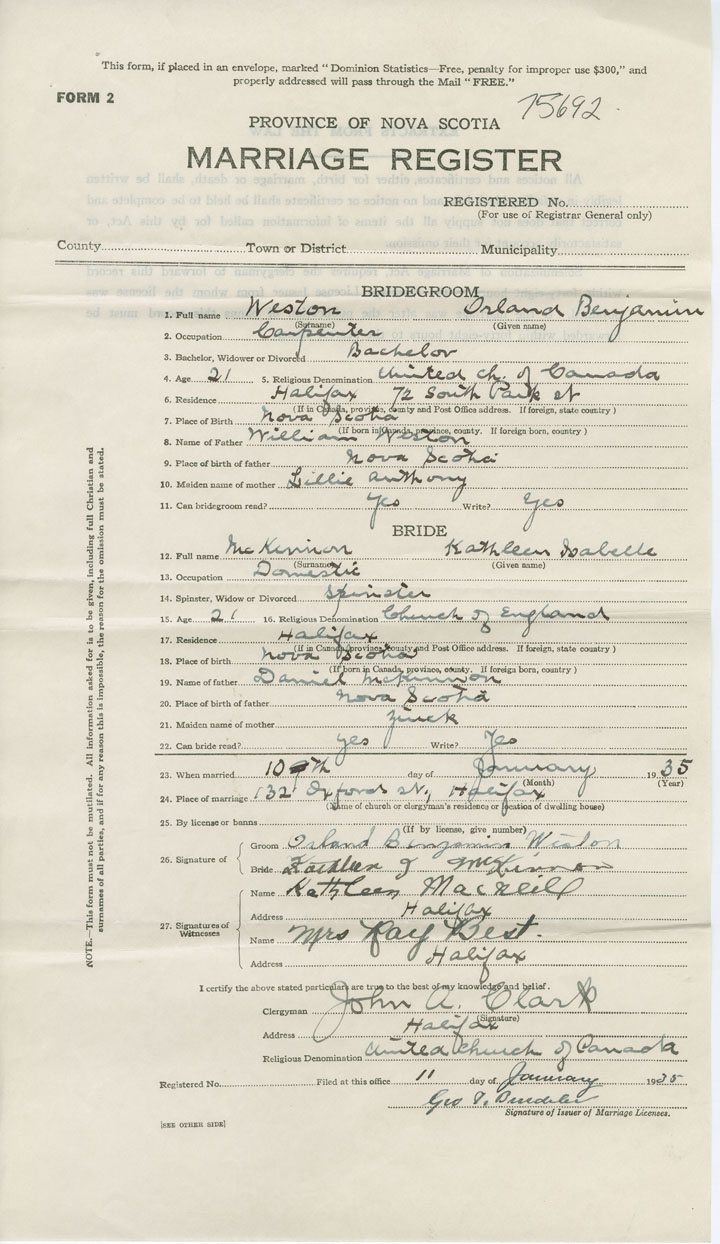 This form, if placed in an envelope, marked "Dominion Statistics—Free, penalty for improper use $300," and
properly addressed will pass through the Mail "FREE."
FORM 2
75692
PROVINCE OF NOVA SCOTIA
MARRIAGE REGISTER
REGISTERED No.
(For use of Registrar General only)
County Town or District Municipality
BRIDEGROOM
1. Full name Weston Orland Benjamin
(Surname) (Given name)
2. Occupation Carpenter
3. Bachelor, Widower or Divorced Bachelor
4. Age 21 5. Religious Denomination United Ch. of Canada
6. Residence Halifax 72 South Park st
(If in Canada, province, county and Post Office address. If foreign, state country)
7. Place of Birth Nova Scotia
(If born in Canada, province, county. If foreign born, country)
8. Name of Father William Weston
9. Place of birth of father Nova Scotia
10. Maiden name of mother Lillie Anthony
11. Can bridegroom read? Yes Write? Yes
BRIDE
12. Full name McKinnon Kathleen Isabelle
(Surname) (Given name)
13. Occupation Domestic
14. Spinster, Widow or Divorced Spinster
15. Age 21 16. Religious Denomination Church of England
17. Residence Halifax
(If in Canada, province, county and Post Office address. If foreign, state country)
18. Place of birth Nova Scotia
(If born in Canada, province, county. If foreign born, country)
19. Name of father Daniel McKinnon
20. Place of birth of father Nova Scotia
21. Maiden name of mother Zinck
22. Can bride read? yes Write? Yes
23. When married 10th day of January 1935
(Month) (Year)
24. Place of marriage 132 Oxford st., Halifax
(Name of church or clergyman's residence or location of dwelling house)
25. By license or banns
(If by license, give number)
26. Signature of
Groom Orland Benjamin Weston
Bride Kathleen J McKinnon
27. Signatures of Witnesses
Name Kathleen MacNeill
Address Halifax
Name Mrs Ray Best.
Address Halifax
I certify the above stated particulars are true to the best of my knowledge and belief.
Clergyman John A. Clark
(Signature)
Address Halifax
Religious Denomination United Church of Canada
Registered No. Filed at this office 11 day of January 1935
Geo
Signature of Issuer of Marriage Licenses.
[SEE OTHER SIDE]
NOTE.—This form must not be mutilated. All information asked for is to be given, including full Christian and
surnames of all parties, and if for any reason this is impossible, the reason for the omission must be stated.